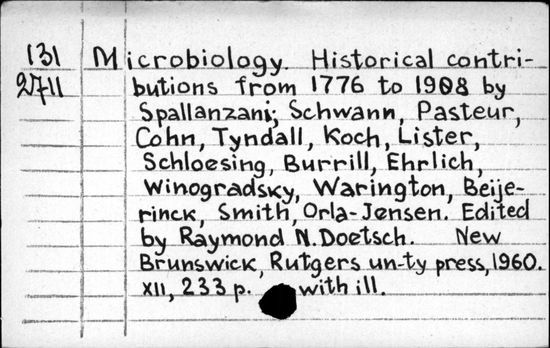 131 Microbiology. Historical contri-
2711 butions from 1776 to 1908 by
Spallanzani; Schwann, Pasteur,
Cohn, Tyndall, Koch, Lister,
Schloesing, Burrill, Ehrlich,
Winogradsky, Warington, Beije-
rinck, Smith, Orla-Jensen. Edited
by Raymond N. Doetsch. New
Brunswick, Rutgers un-ty press, 1960.
XII, 233 p. with ill.